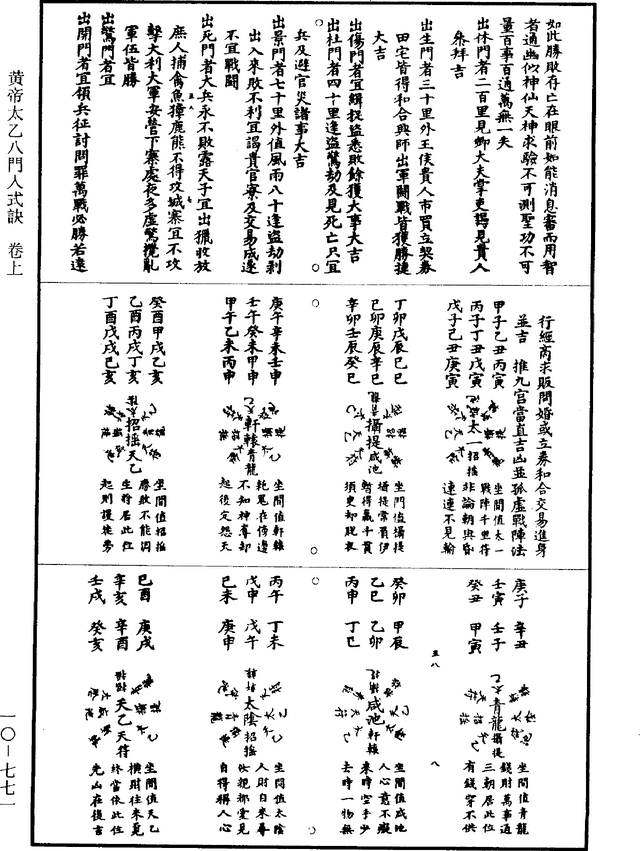 如此勝敗存亡在眼前如能消息審而用智
者通幽似神仙天神求驗不可測聖功不可
量百事百通萬無一失
出休門者二百里見卿大夫掌吏謁見貴人
參拜吉
出生門者三十里外王侯貴人市買立契券
田宅皆得和合興師出軍鬪戰皆獲勝捷
大吉
出傷門者宜緝捉盜悉敗餘獲大事大吉
出杜門者四十里逢盜驚劫及見死亡只宜
兵及避官災諸事大吉
出景門者七十里外值風雨八十逢盜劫剥
出入來敗不利宜謁貴官寮及交易成遂
不宜戰鬪
出死門者大兵永不敗露天子宜出獵收放
庶人捕禽魚獐鹿熊不得攻城寨宜不攻
擊大利大軍安營下寨處夜多虛驚攪亂
軍伍皆勝
出驚門者宜
出開門者宜領兵征討問罪萬戰必勝若遠
行經商求販問婚或立券和合交易進身
並吉 推九宮當直吉凶並孤虛戰陣法
甲子乙丑丙寅
丙子丁丑戊寅
戊子己丑庚寅
太一招搖
坐間值太一
戰陣千里符
非論朝與昏
連連不見輸
丁卯戊辰己巳
己卯庚辰辛巳
辛卯壬辰癸巳
攝提咸池
坐門值攝提
攝提常買伊
暫得贏千貫
須臾却脫衣
庚午辛未壬申
壬午癸未甲申
甲午乙未丙申
軒轅青龍
坐間值軒轅
乾冤在傍邊
不知神奪却
起後定怨天
癸酉甲戌乙亥
乙酉丙戌丁亥
丁酉戊戌己亥
招搖天乙
坐間值招搖
勝敗不能調
生將居此位
起則護徒勞
庚子 辛丑
壬寅 壬子
癸丑 甲寅
青龍攝提
坐間值青龍
錢財萬事通
三朝居此位
有錢穿不供
癸卯 甲辰
乙巳 乙卯
丙申 丁巳
咸池軒轅
坐間值咸池
人心意不癡
來時空手少
去時一物無
丙午 丁未
戊申 戊午
己未 庚申
太陰招搖
坐間值太陰
人財自來尋
收視都愛見
自得稱人心
己酉 庚戌
辛亥 辛酉
壬戌 癸亥
天乙天符
坐間值天乙
橫財往來覓
終當依此位
先凶在後吉
黃帝太乙八門入式訣 卷上
一〇—七七一